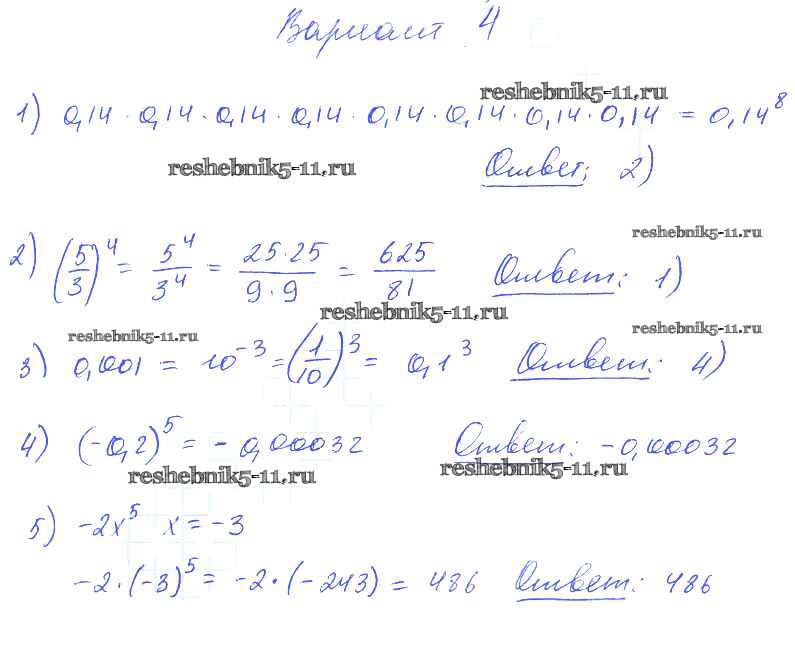 Вариант 4
reshebnik5-11.ru
1) 0,14 · 0,14 · 0,14 · 0,14 · 0,14 · 0,14 · 0,14 · 0,14 = 0,14⁸
reshebnik5-11.ru
Ответ: 2)
reshebnik5-11.ru
2) (5/3)⁴ = 5⁴/3⁴ = 25·25/9·9 = 625/81 Ответ: 1)
reshebnik5-11.ru
reshebnik5-11.ru
reshebnik5-11.ru
3) 0,001 = 10⁻³ = (1/10)³ = 0,1³ Ответ: 4)
4) (-0,2)⁵ = - 0,00032 Ответ: -0,00032
reshebnik5-11.ru
reshebnik5-11.ru
5) -2x⁵ x = -3
-2·(-3)⁵ = -2·(-243) = 486 Ответ: 486